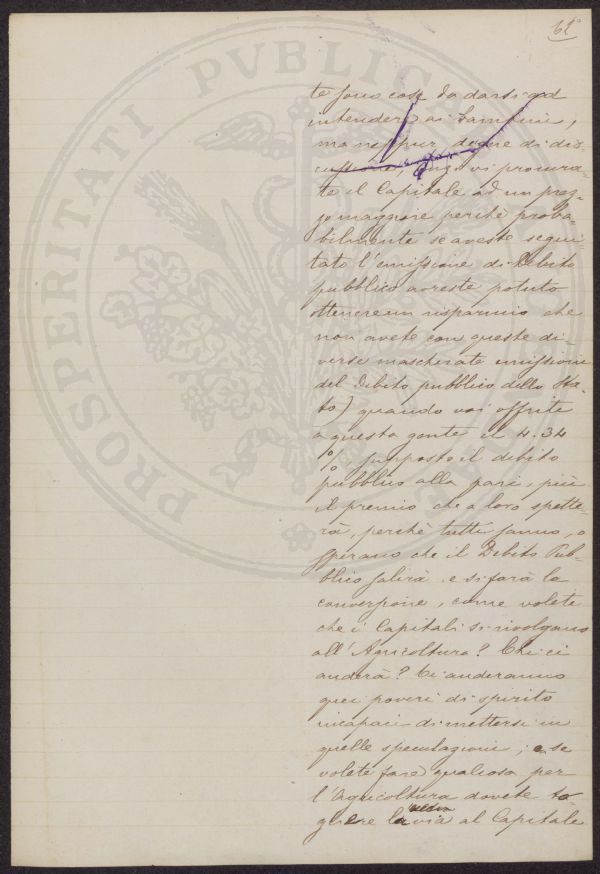 62
te sono cose da darsi ad
intendere ai bambini,
ma neppur degne di dis-
cussione, anzi vi procura-
te il Capitale ad un prez-
zo maggiore perché proba-
bilmente se aveste segui-
tato l'emissione di Debito
pubblico avreste potuto
ottenere un risparmio che
non avete con queste di-
verse mascherate emissioni
del Debito pubblico dello Sta-
to) quando voi offrite
a questa gente il 4.34
% supposto il debito
pubblico alla pari, più
il premio che a loro spette-
rà, perchè tutti sanno, o
sperano che il Debito Pub-
blico salirà e si farà la
conversione, come volete
che i Capitali si rivolgano
all'Agricoltura? Chi ci
anderà? Ci anderanno
quei poveri di spirito
incapaci di mettersi in
quelle speculazioni; e se
volete fare qualcosa per
l'Agricoltura dovete to-
gliere la via al Capitale
PROSPERITATI PVBLICAE